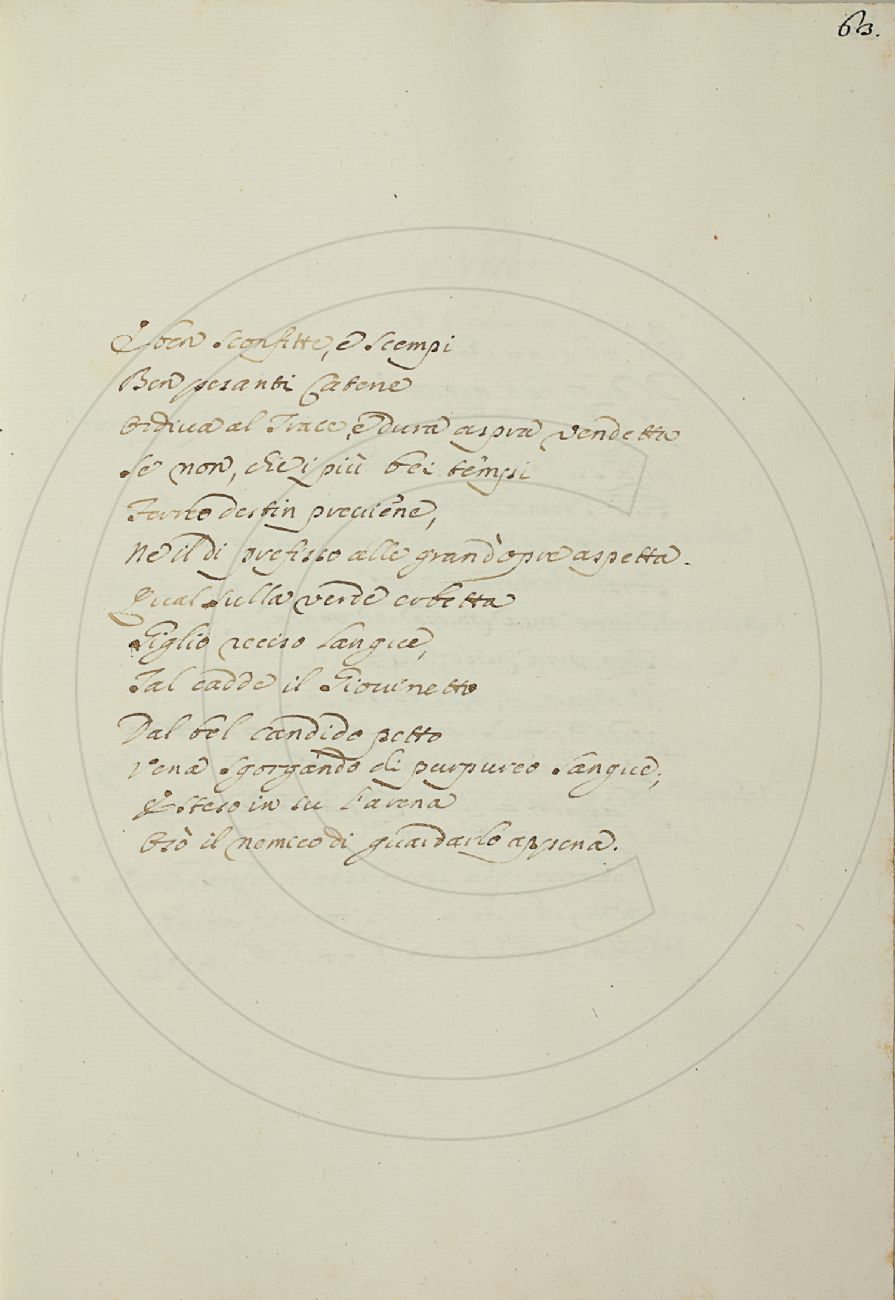 63.
E ben sconfitte, e scempi
Ben pesanti Catene
Ordiva al Trace, e dura aspra vendetta
Se non, che i più bei tempi
Ferreo destin previene,
Ne il dì prefisso alle grand'opre aspetta.
Qual sulla verde erbetta
Giglio reciso langue,
Tal cadde il Giovinetto
Dal bel candido petto
Vena sgorgando di purpureo sangue;
E steso in su l'arena
Osò il nemico di guardarlo appena.